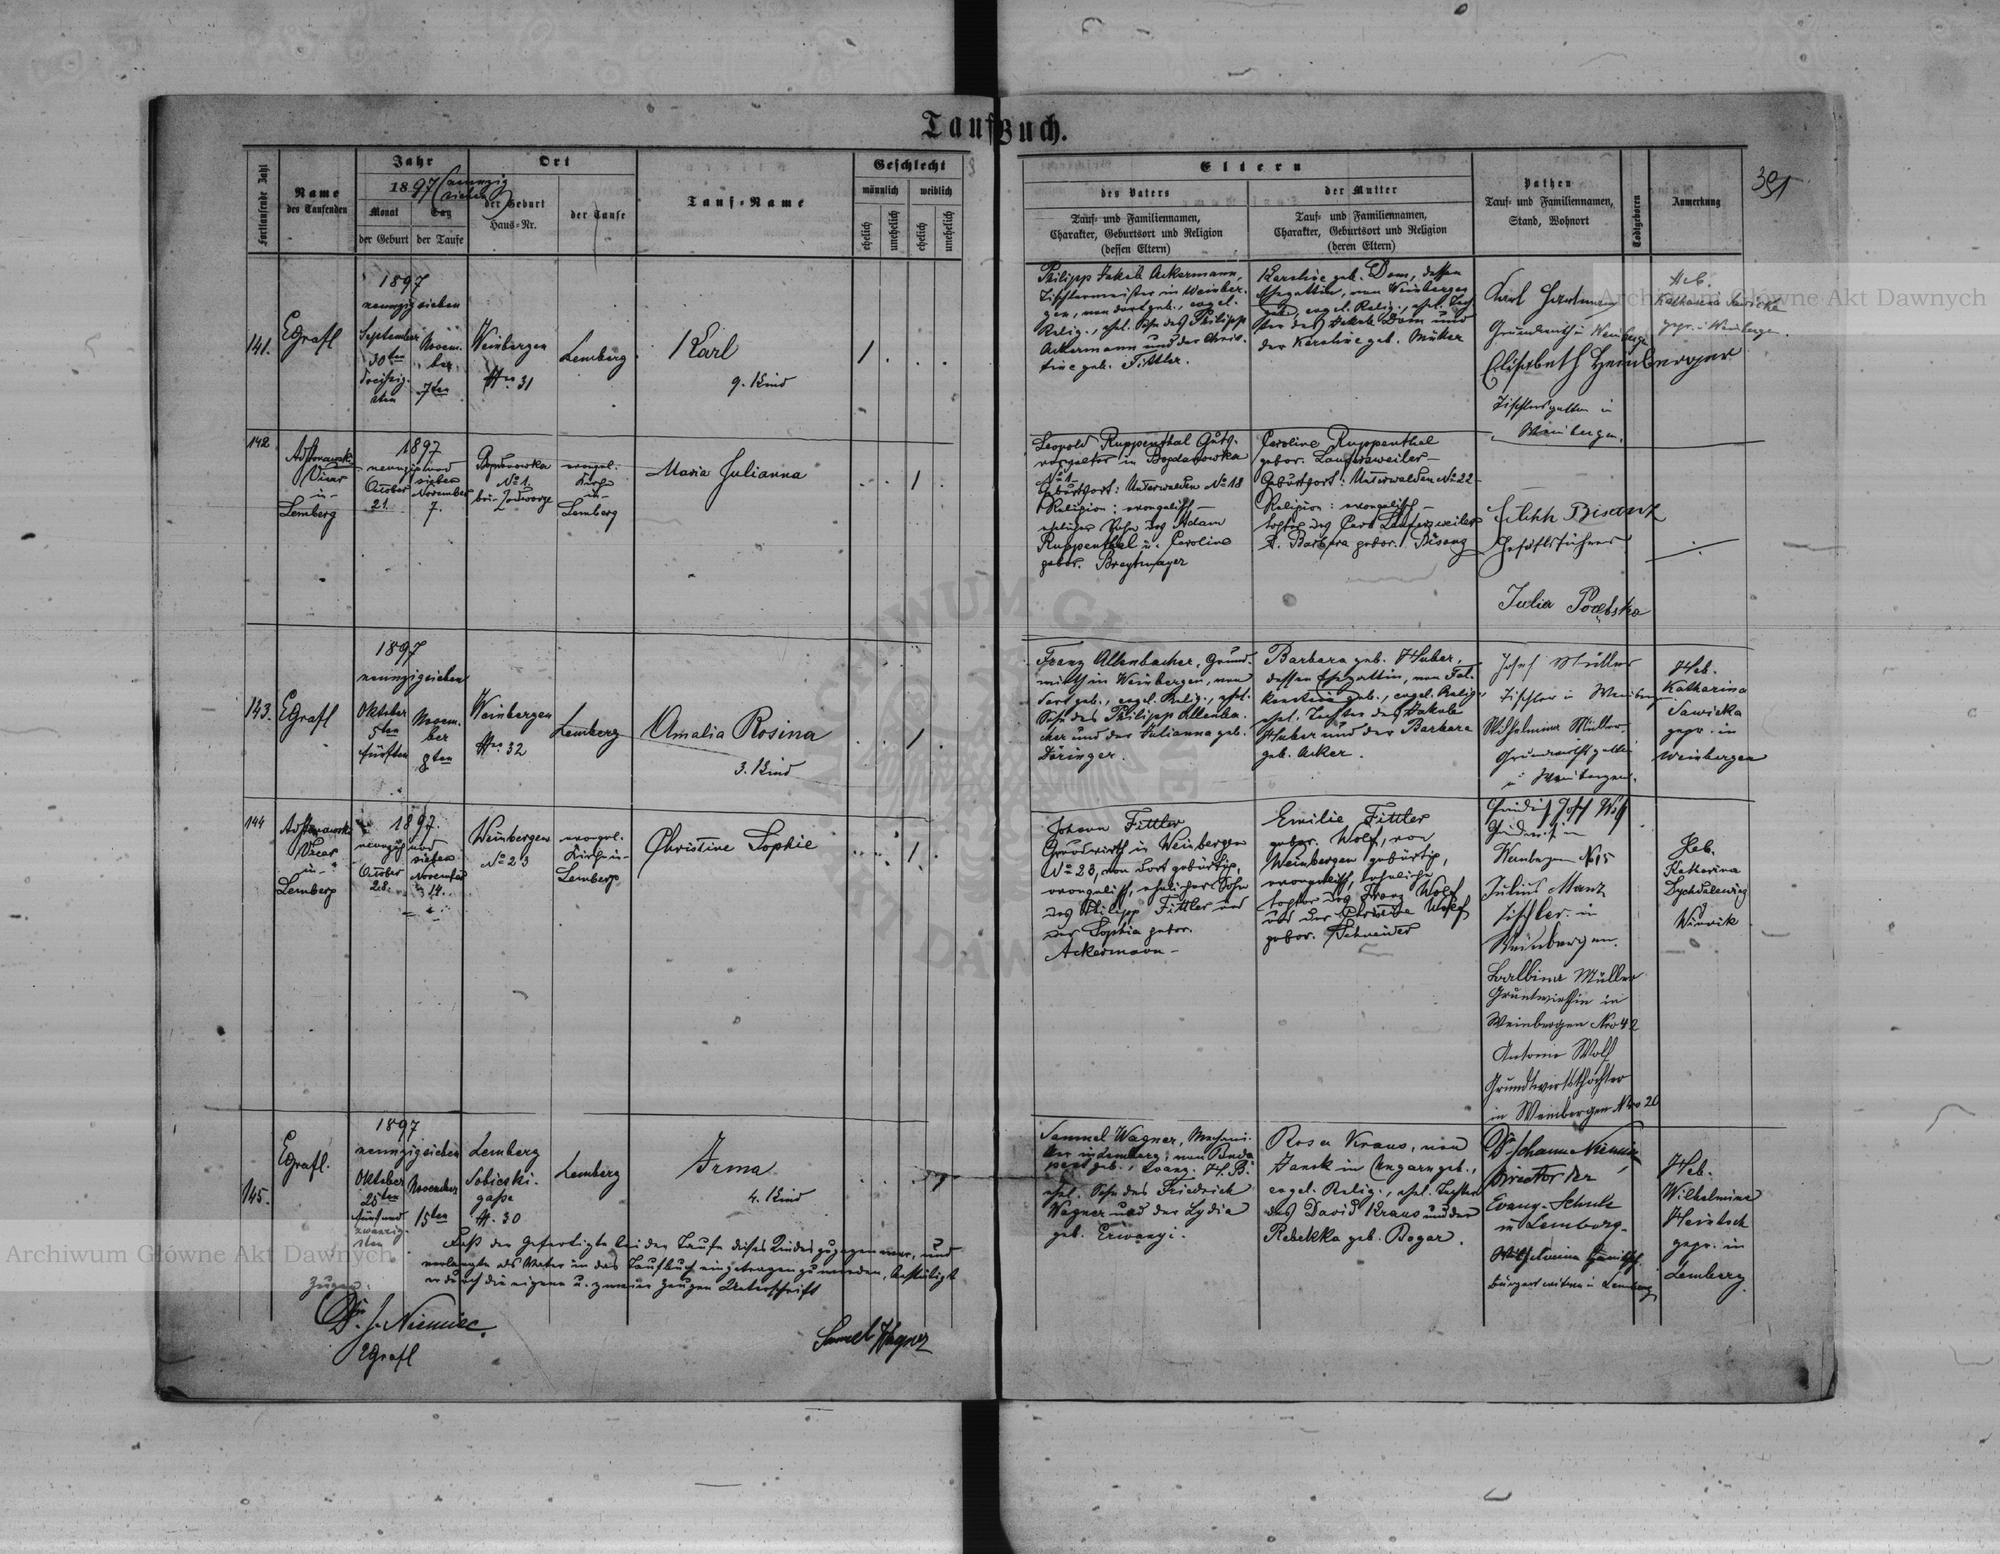 Taufbuch.
391
Fortlaufende Zahl
Name
des Taufenden
Jahr
1897
Monat
Tag
der Geburt
der Taufe
Ort
der Geburt
Haus-Nr.
der Taufe
Tauf-Name
Geschlecht
männlich
weiblich
ehelich
unehelich
ehelich
unehelich
Eltern
des Vaters
Tauf- und Familiennamen,
Charakter, Geburtsort und Religion
(dessen Eltern)
der Mutter
Tauf- und Familiennamen,
Charakter, Geburtsort und Religion
(deren Eltern)
Pathen
Tauf- und Familiennamen,
Stand, Wohnort
Todgeboren
Anmerkung
141.
Egrafl
1897
neunzigsieben
September
30ten
dreißig-
sten
Novem-
ber
7ten
Weinbergen
No 31
Lemberg
Karl
9. Kind
1
Philipp Jakob Ackermann,
Tischlermeister in Weinber-
gen, von dort geb., evgel.
Relig., ehel. Sohn des Philipp
Ackermann und der Chris-
tine geb. Fittler.
Karoline geb. Dom, dessen
Ehegattin, von Weinbergen
geb., evgel. Relig., ehel. Toch-
ter des Jakob Dom und
der Karoline geb. Müller
Karl Hartmann
Grundwirth in Weinbergen
Elisabeth Heuberger
Tischlersgattin in
Weinbergen.
Heb.
Katharina Sawicka
gepr. in Weinbergen.
142
Vicar
in
Lemberg
1897
neunzig und
sieben
October
21.
November
7.
Bogdanowka
No 1.
evangel.
Kirche
in
Lemberg
Maria Julianna
1
Leopold Ruppenthal Guts-
verwalter in Bogdanowka
No 1
Geburtsort: Unterwalden No 18
Religion: evangelisch
ehelicher Sohn des Adam
Ruppenthal u. Caroline
gebor. Breytmayer
Caroline Ruppenthal
gebor. Laufersweiler
Geburtsort: Unterwalden No 22
Religion: evangelisch
Tochter des Carl Laufersweiler
u. Barbara gebor. Bisanz
Bisanz
Geschäftsführer
Julia Porębska
143.
Egrafl
1897
neunzigsieben
Oktober
5ten
fünften
Novem-
ber
8ten
Weinbergen
No 32
Lemberg
Amalia Rosina
3. Kind
1
Franz Allenbacher, Grund-
wirth in Weinbergen, von
dort geb., evgel. Relig., ehel.
Sohn des Philipp Allenba-
cher und der Julianna geb.
Döringer.
Barbara geb. Huber,
dessen Ehegattin, von Fal-
kenstein geb., evgel. Relig.,
ehel. Tochter des Jakob
Huber und der Barbara
geb. Acker.
Josef Müller
Tischler in Weinbergen
Wilhelmina Müller
Grundwirthsgattin
in Weinbergen.
Heb.
Katharina
Sawicka
gepr. in
Weinbergen
144
Vicar
in
Lemberg
1897.
neunzig und
sieben
October
28.
November
14.
Weinbergen
No 23
evangel.
Kirche in
Lemberg
Christine Sophie
1
Johann Fittler
Grundwirth in Weinbergen
No 23, von dort gebürtig,
evangelisch, ehelicher Sohn
des Philipp Fittler und
der Sophia gebor.
Ackermann
Emilie Fittler
gebor. Wolf, von
Weinbergen gebürtig,
evangelisch, eheliche
Tochter des Franz Wolf
und der Christine Wolf
gebor. Schneider
Josef Wolf
Weinbergen No 15
Julius Manz
Tischler in
Weinbergen.
Balbina Müller
Gruntwirthin in
Weinbergen Nro 42
Antonie Wolf
Grundtwirtsthochter
in Weinbergen Nro 20
Heb.
Katharina
Winnik
145.
Egrafl.
1897
neunzigsieben
Oktober
25ten
fünfund
zwanzig-
sten
November
15ten
Lemberg
Sobieski-
gasse
N. 30
Lemberg
Irma
4. Kind
1
Samuel Wagner, Mechani-
ker in Lemberg, von Buda-
pest geb., Evang. H. B.
ehel. Sohn des Friedrich
Wagner und der Lydia
geb. Erwanyi.
Rosa Kraus, von
Janok in Ungarn geb.,
evgel. Relig., ehel. Tochter
des David Kraus und der
Rebekka geb. Bogar.
Dr. Johann Niemiec
Director der
Evang. Schule
in Lemberg.
Wilhelmina Heintsch
Bürgerswitwe in Lemberg
Heb.
Wilhelmine
Heintsch
gepr. in
Lemberg.
Daß der Gefertigte bei der Taufe dieses Kindes zugegen war, und
verlangte als Vater in das Taufbuch eingetragen zu werden, bestätigt
er durch die eigene u. zweier Zeugen Unterschrift
Zeugen:
Dr. J. Niemiec.
Egrafl
Samuel Wagner
Archiwum Główne Akt Dawnych
Archiwum Główne Akt Dawnych
ARCHIWUM GŁÓWNE AKT DAWNYCH